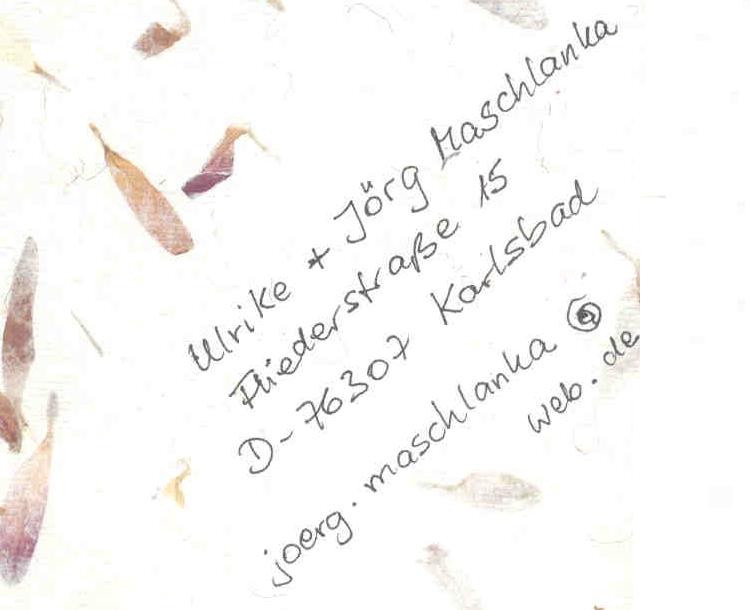 Ulrike + Jörg Maschlanka
Fliederstraße 15
D-76307 Karlsbad
joerg.maschlanka @
web.de